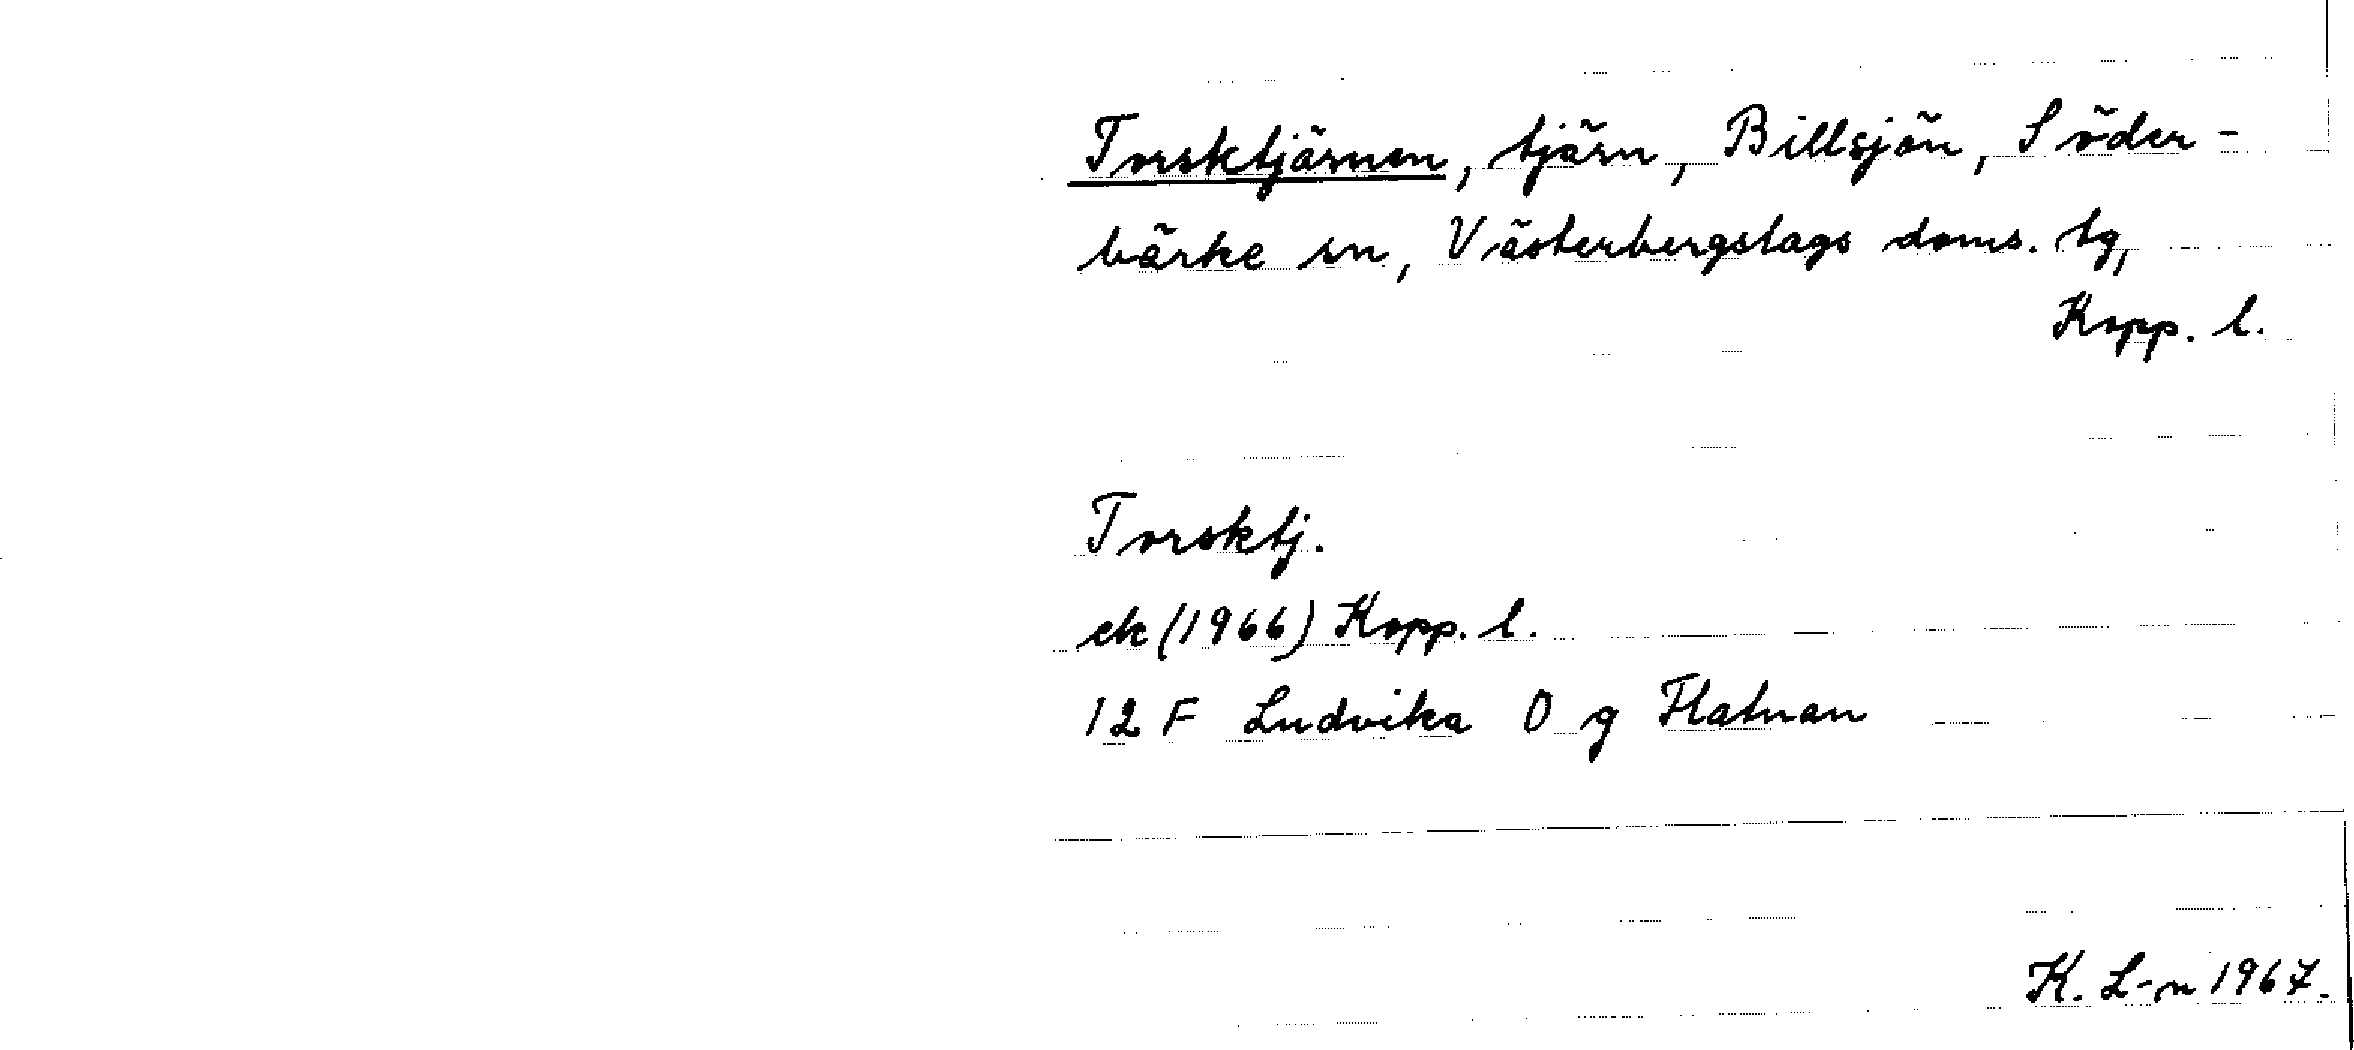 Torsktjärnen, tjärn, Billsjön, Söder-
bärke sn, Västerbergslags doms. tg,
Kopp. l.
Torsktj.
ek (1966) Kopp. l.
12 F Ludvika O g Flatnan
K. L-n 1967.